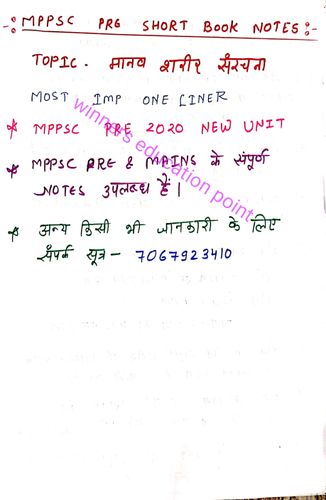 MPPSC PRE SHORT BOOK NOTES :-
TOPIC - मानव शरीर संरचना
MOST IMP ONE LINER
* MPPSC PRE 2020 NEW UNIT
* MPPSC PRE & MAINS के संपूर्ण
NOTES उपलब्ध हैं।
* अन्य किसी भी जानकारी के लिए
संपर्क सूत्र - 7067923410
winners education point